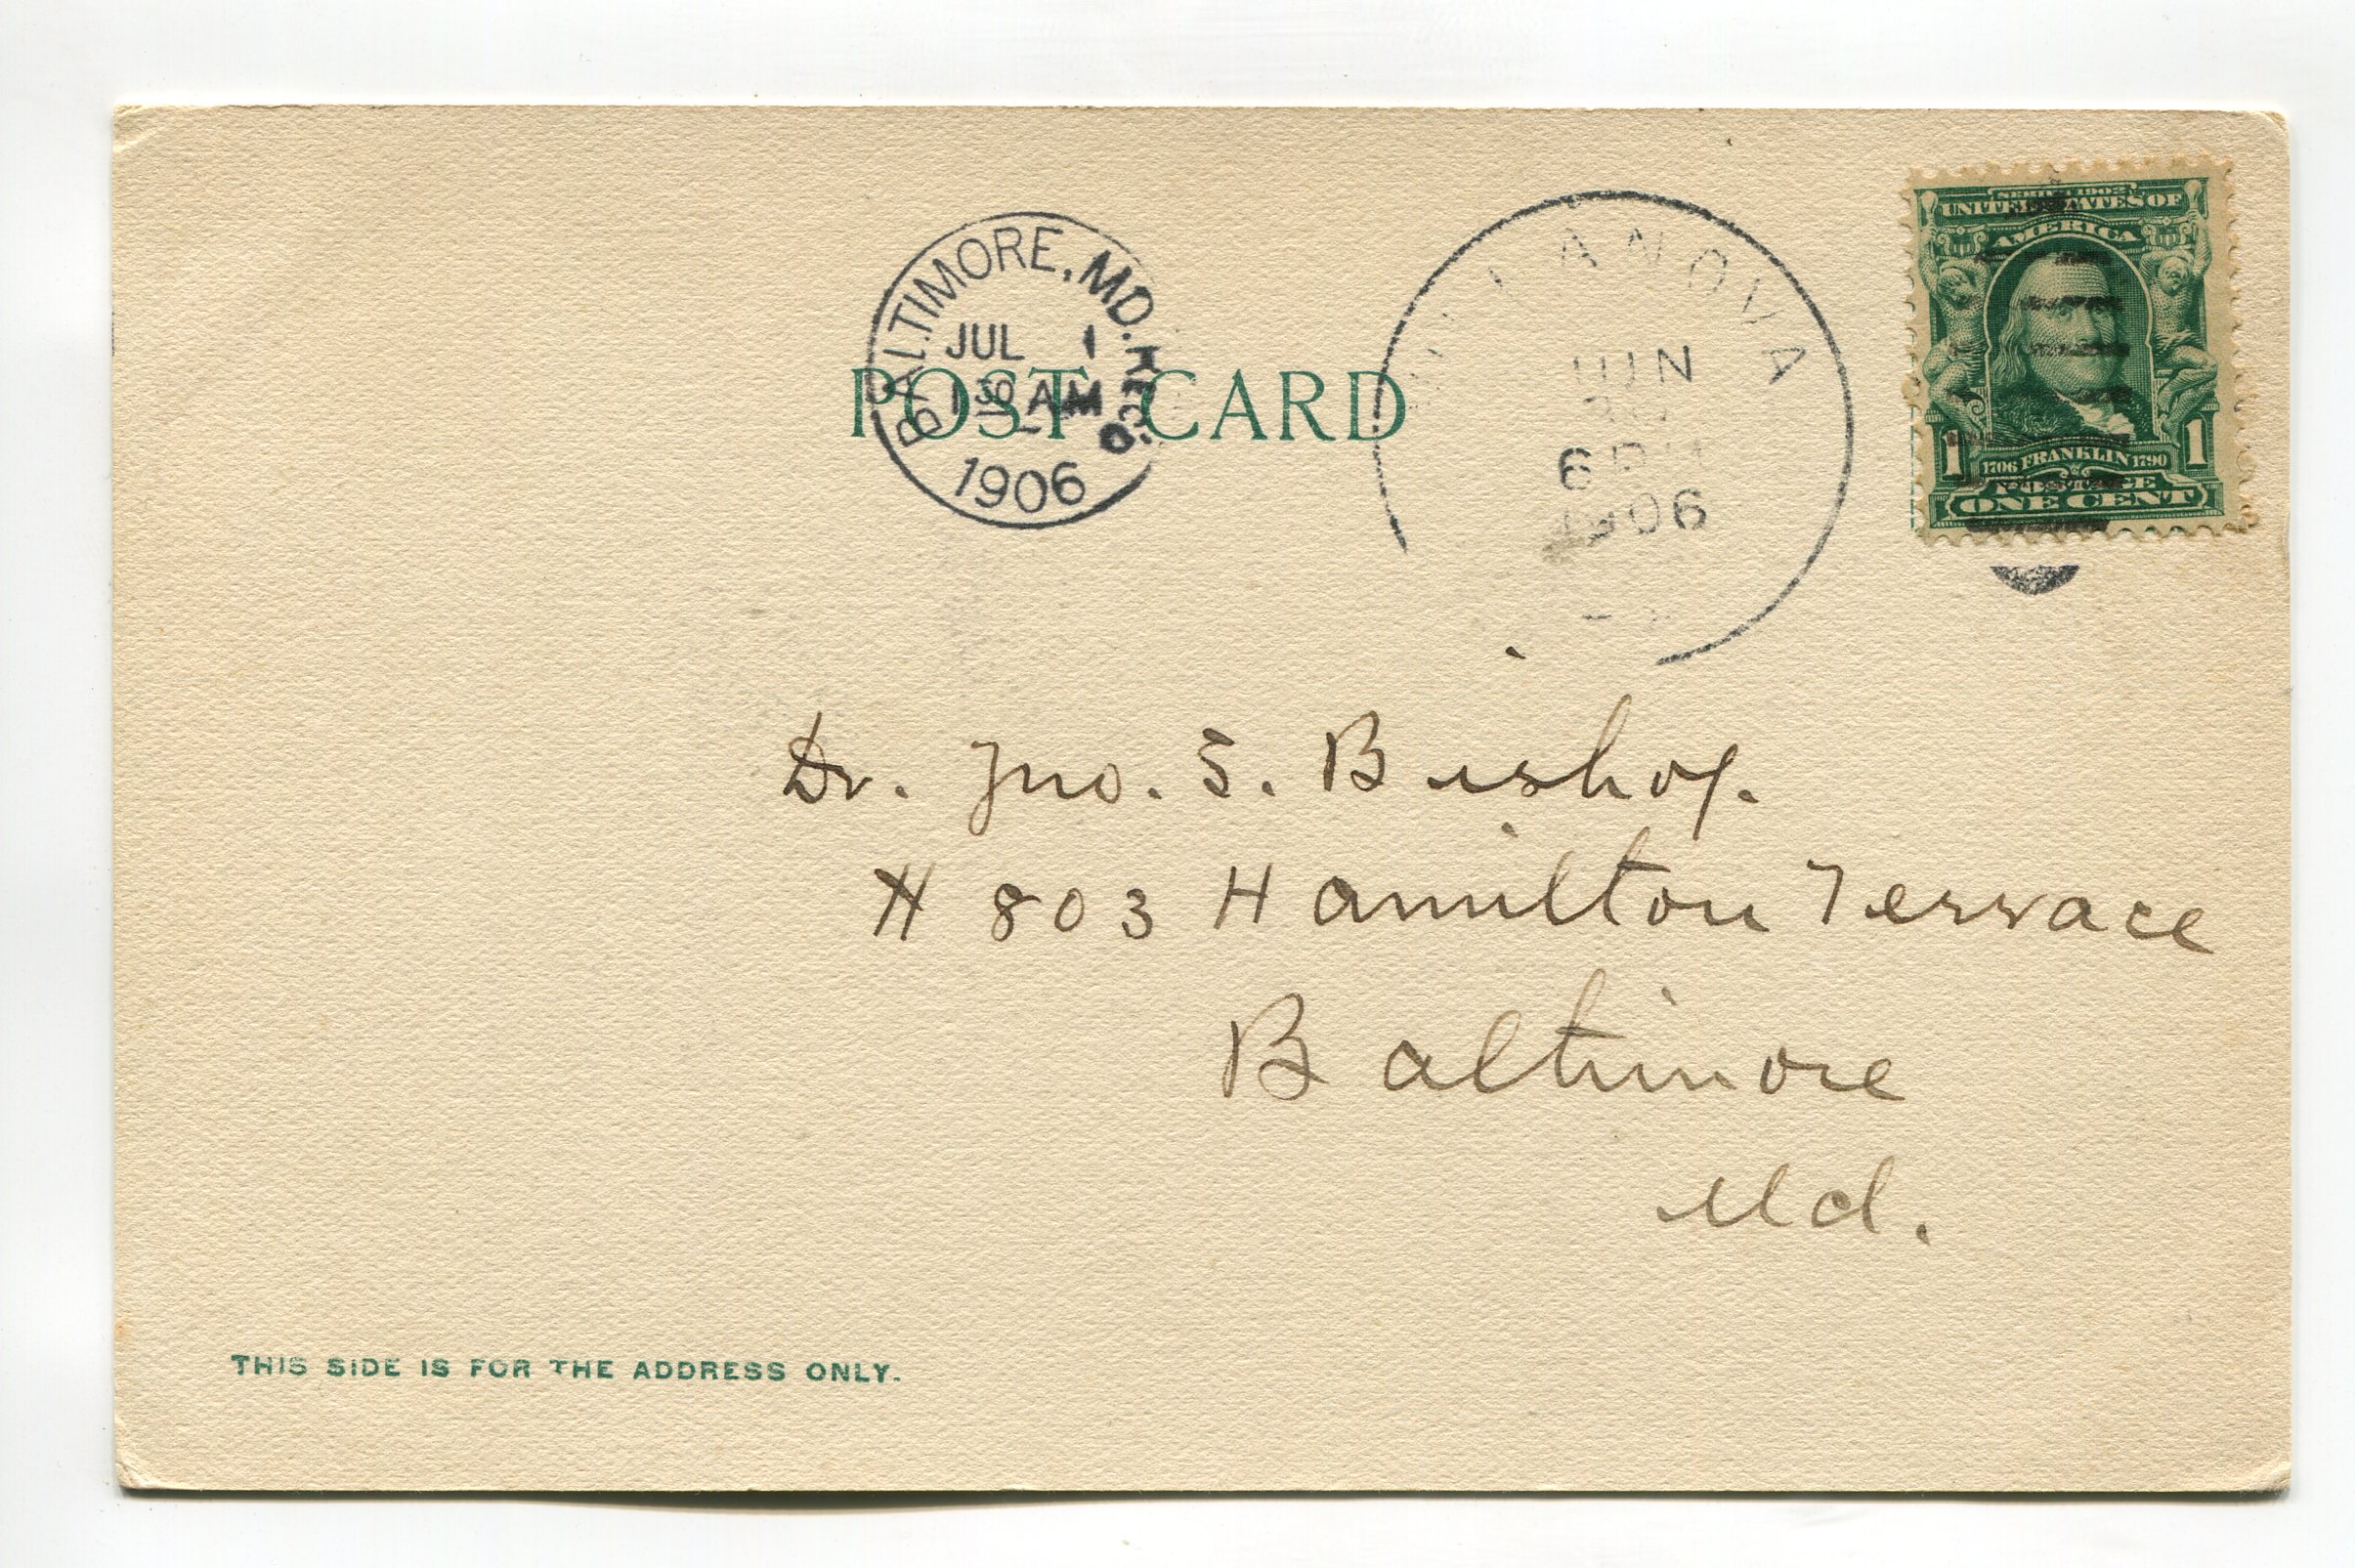 BALTIMORE, MD. REC'D
JUL 1
1 30 AM
1906
POST CARD
JUN
6 PM
1906
SERIES 1902
UNITED STATES OF
AMERICA
1 1706 FRANKLIN 1790 1
POSTAGE
ONE CENT
Dr. Jno. S. Bishop.
# 803 Hamilton Terrace
Baltimore
Md.
THIS SIDE IS FOR THE ADDRESS ONLY.